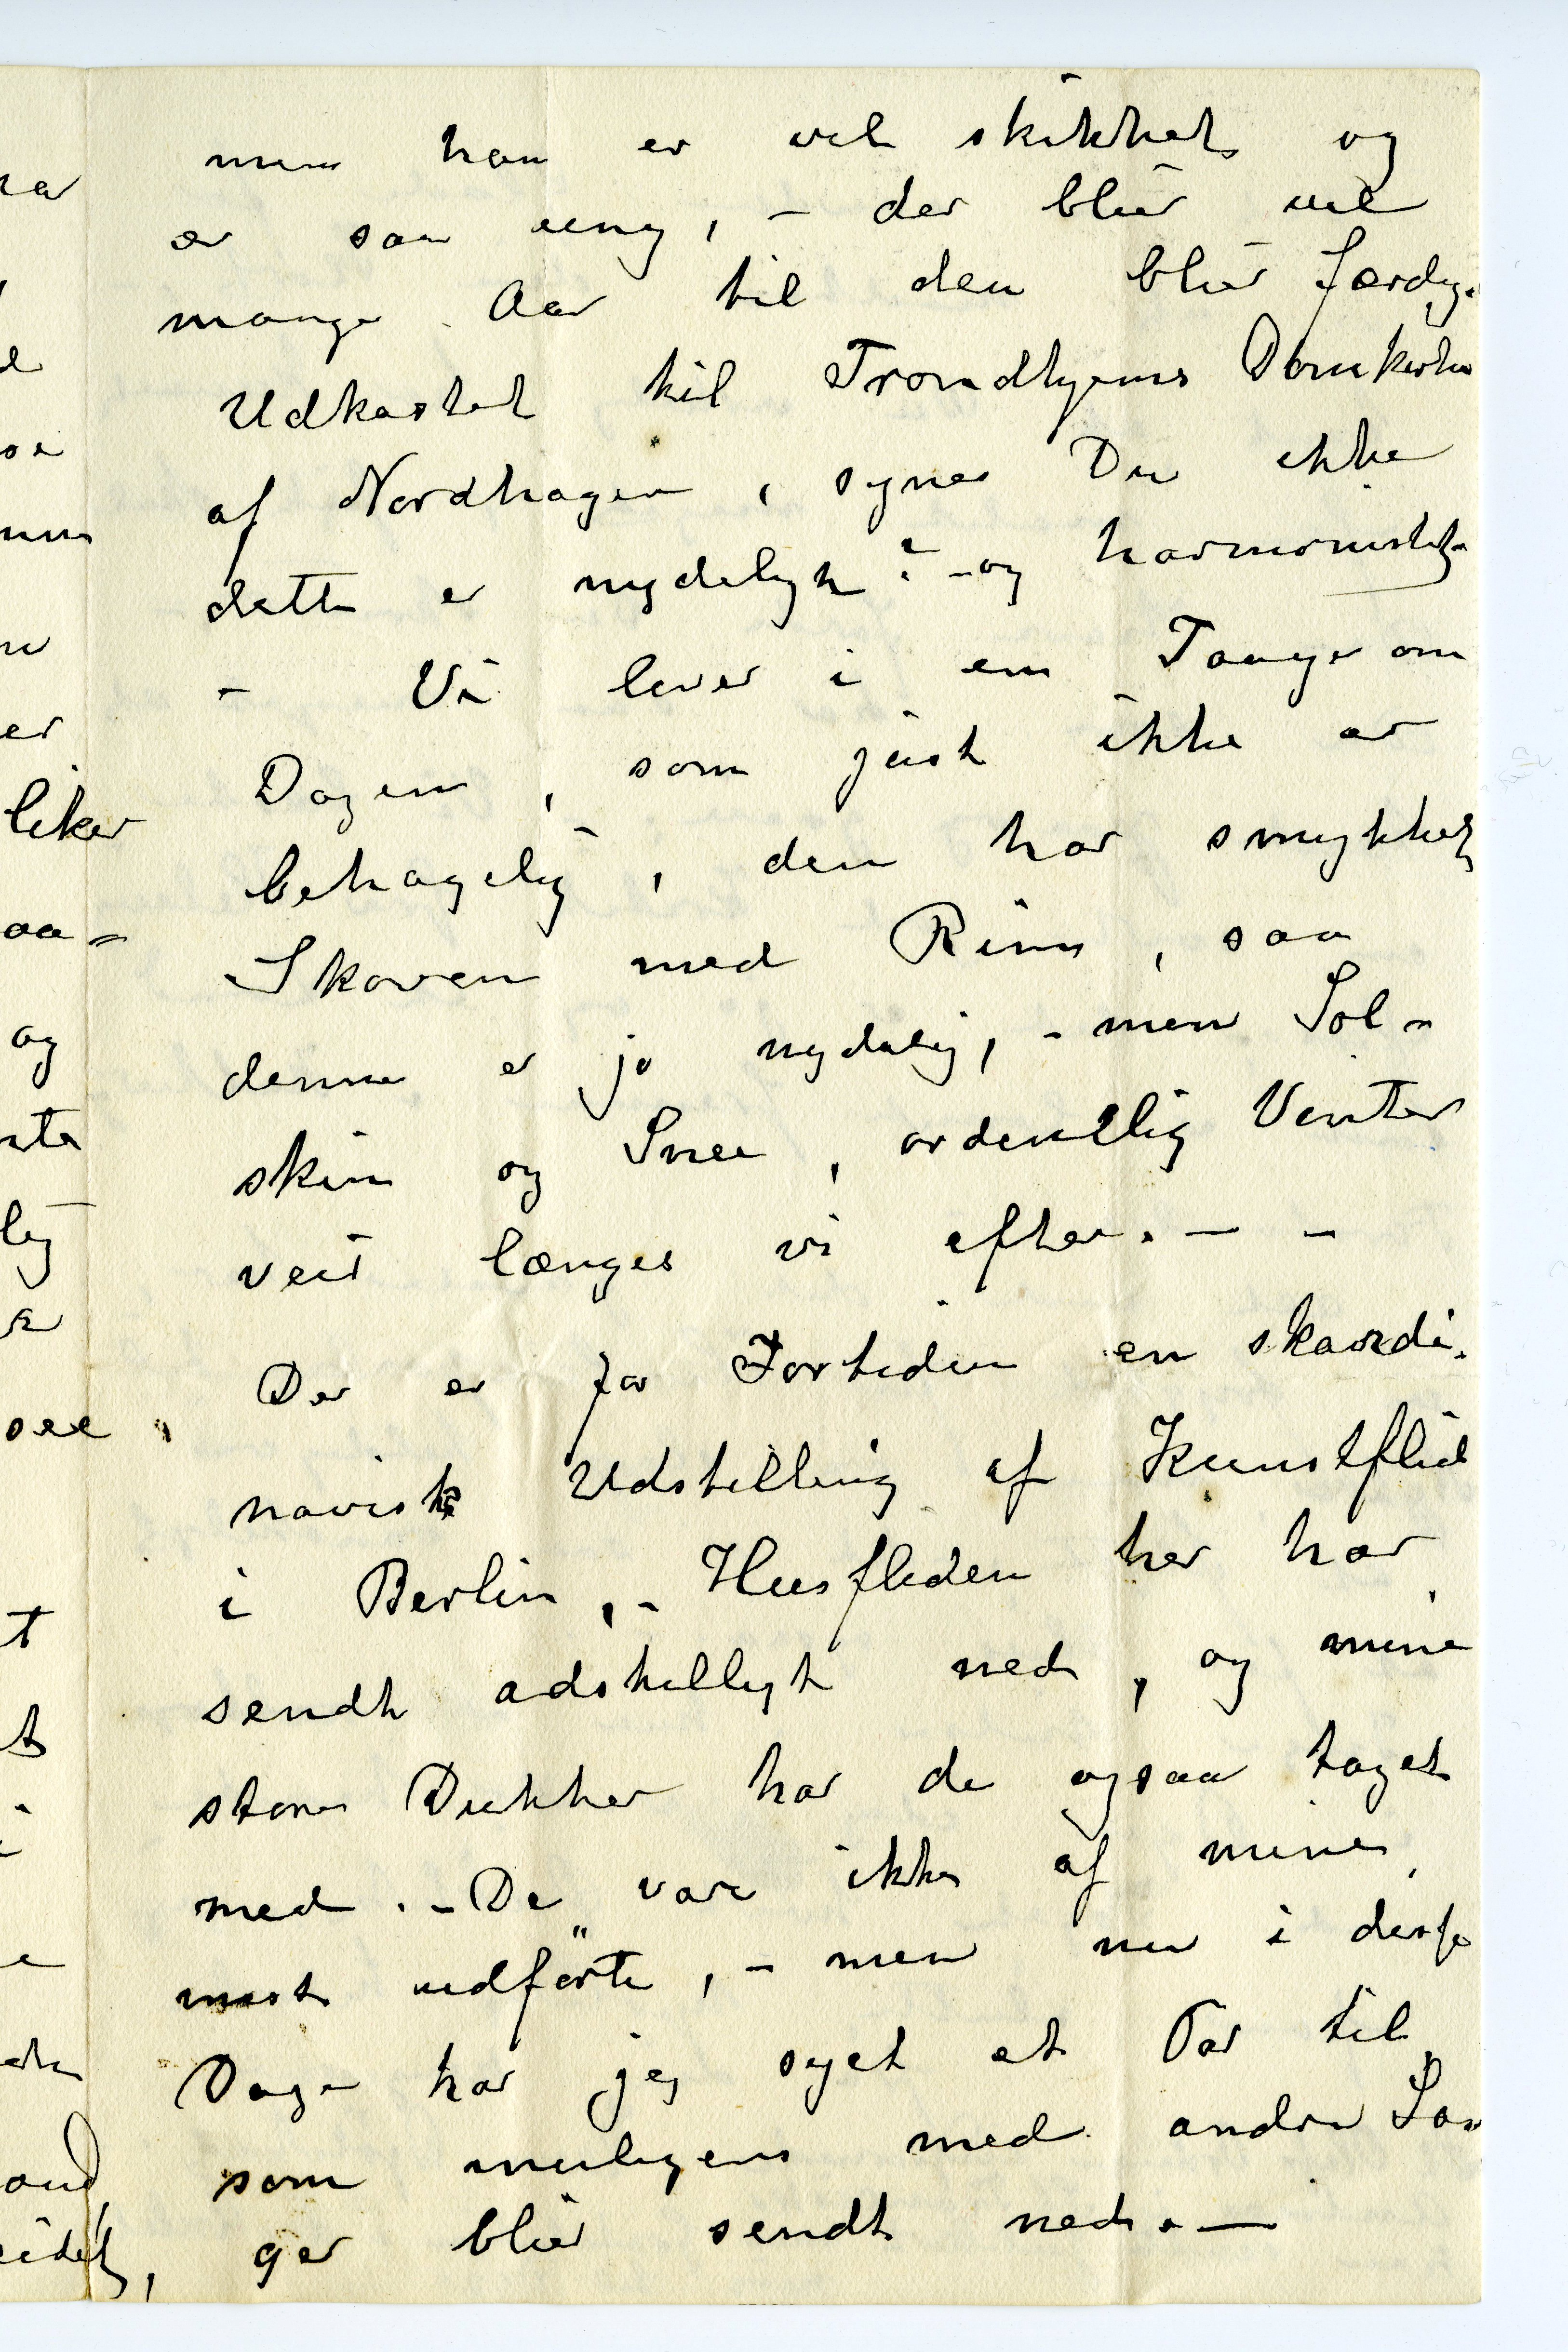 men han er vel skikket og
er saa ung, – der blir vel
mange Aar til den blir færdig.
Udkastet til Trondhjems Domkirke
af Nordhagen, synes Du ikke
dette er nydeligt? – og harmonisk
– Vi lever i en Taage om
Dagen, som just ikke er
behagelig, den har smykket
Skoven med Rim, saa
denne er jo nydelig, – men Sol-
skin og Snee, ordentlig Vinter
veir længes vi efter. – –
Der er for Fortiden en skandi-
navisk Udstilling af Kunstflid
i Berlin, – Husfliden her har
sendt adskelligt ned, og mine
store Dukker har de ogsaa taget
med. – De var ikke af mine
mest udførte, – men nu i disse
Dage har jeg syet et Par til
som muligens med andre Sa
ger blir sendt ned. –
liker
og
see